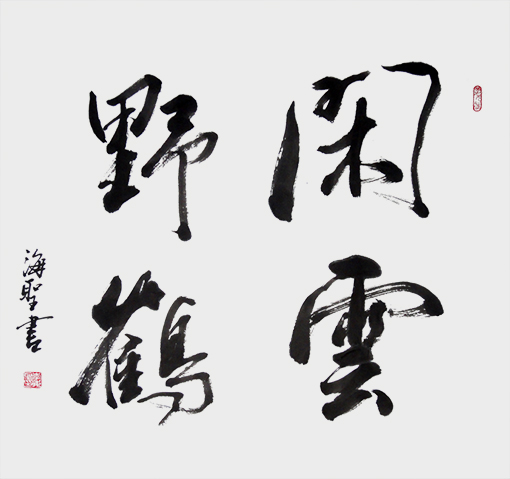 閑雲
野鶴
海聖書